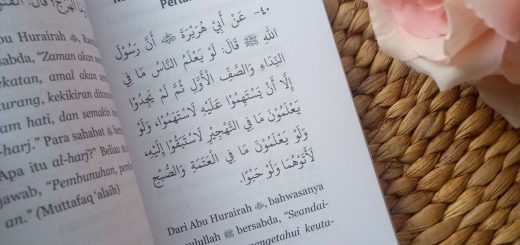 Hurairah ﷺ,
bda, "Zaman akan
ekatan, amal akan se-
urang, kekikiran diteb-
am hati, dan semakin
al-harj." Para sahabat
Apa itu al-harj?" Beliau
jawab, "Pembunuhan, pem-
an." (Muttafaq 'alaih)
Perta
٤٠- عَنْ أَبِي هُرَيْرَةَ ﷺ أَنَّ رَسُولَ
اللهِ ﷺ قَالَ: لَوْ يَعْلَمُ النَّاسُ مَا فِي
النِّدَاءِ وَالصَّفِّ الْأَوَّلِ ثُمَّ لَمْ يَجِدُوا
إِلَّا أَنْ يَسْتَهِمُوا عَلَيْهِ لَاسْتَهَمُوا، وَلَوْ
يَعْلَمُونَ مَا فِي التَّهْجِيرِ لَاسْتَبَقُوا إِلَيْهِ،
وَلَوْ يَعْلَمُونَ مَا فِي الْعَتَمَةِ وَالصُّبْحِ
لَأَتَوْهُمَا وَلَوْ حَبْوًا.
Dari Abu Hurairah, bahwasanya
ulullah ﷺ bersabda, "Seandai-
mengetahui keuta-